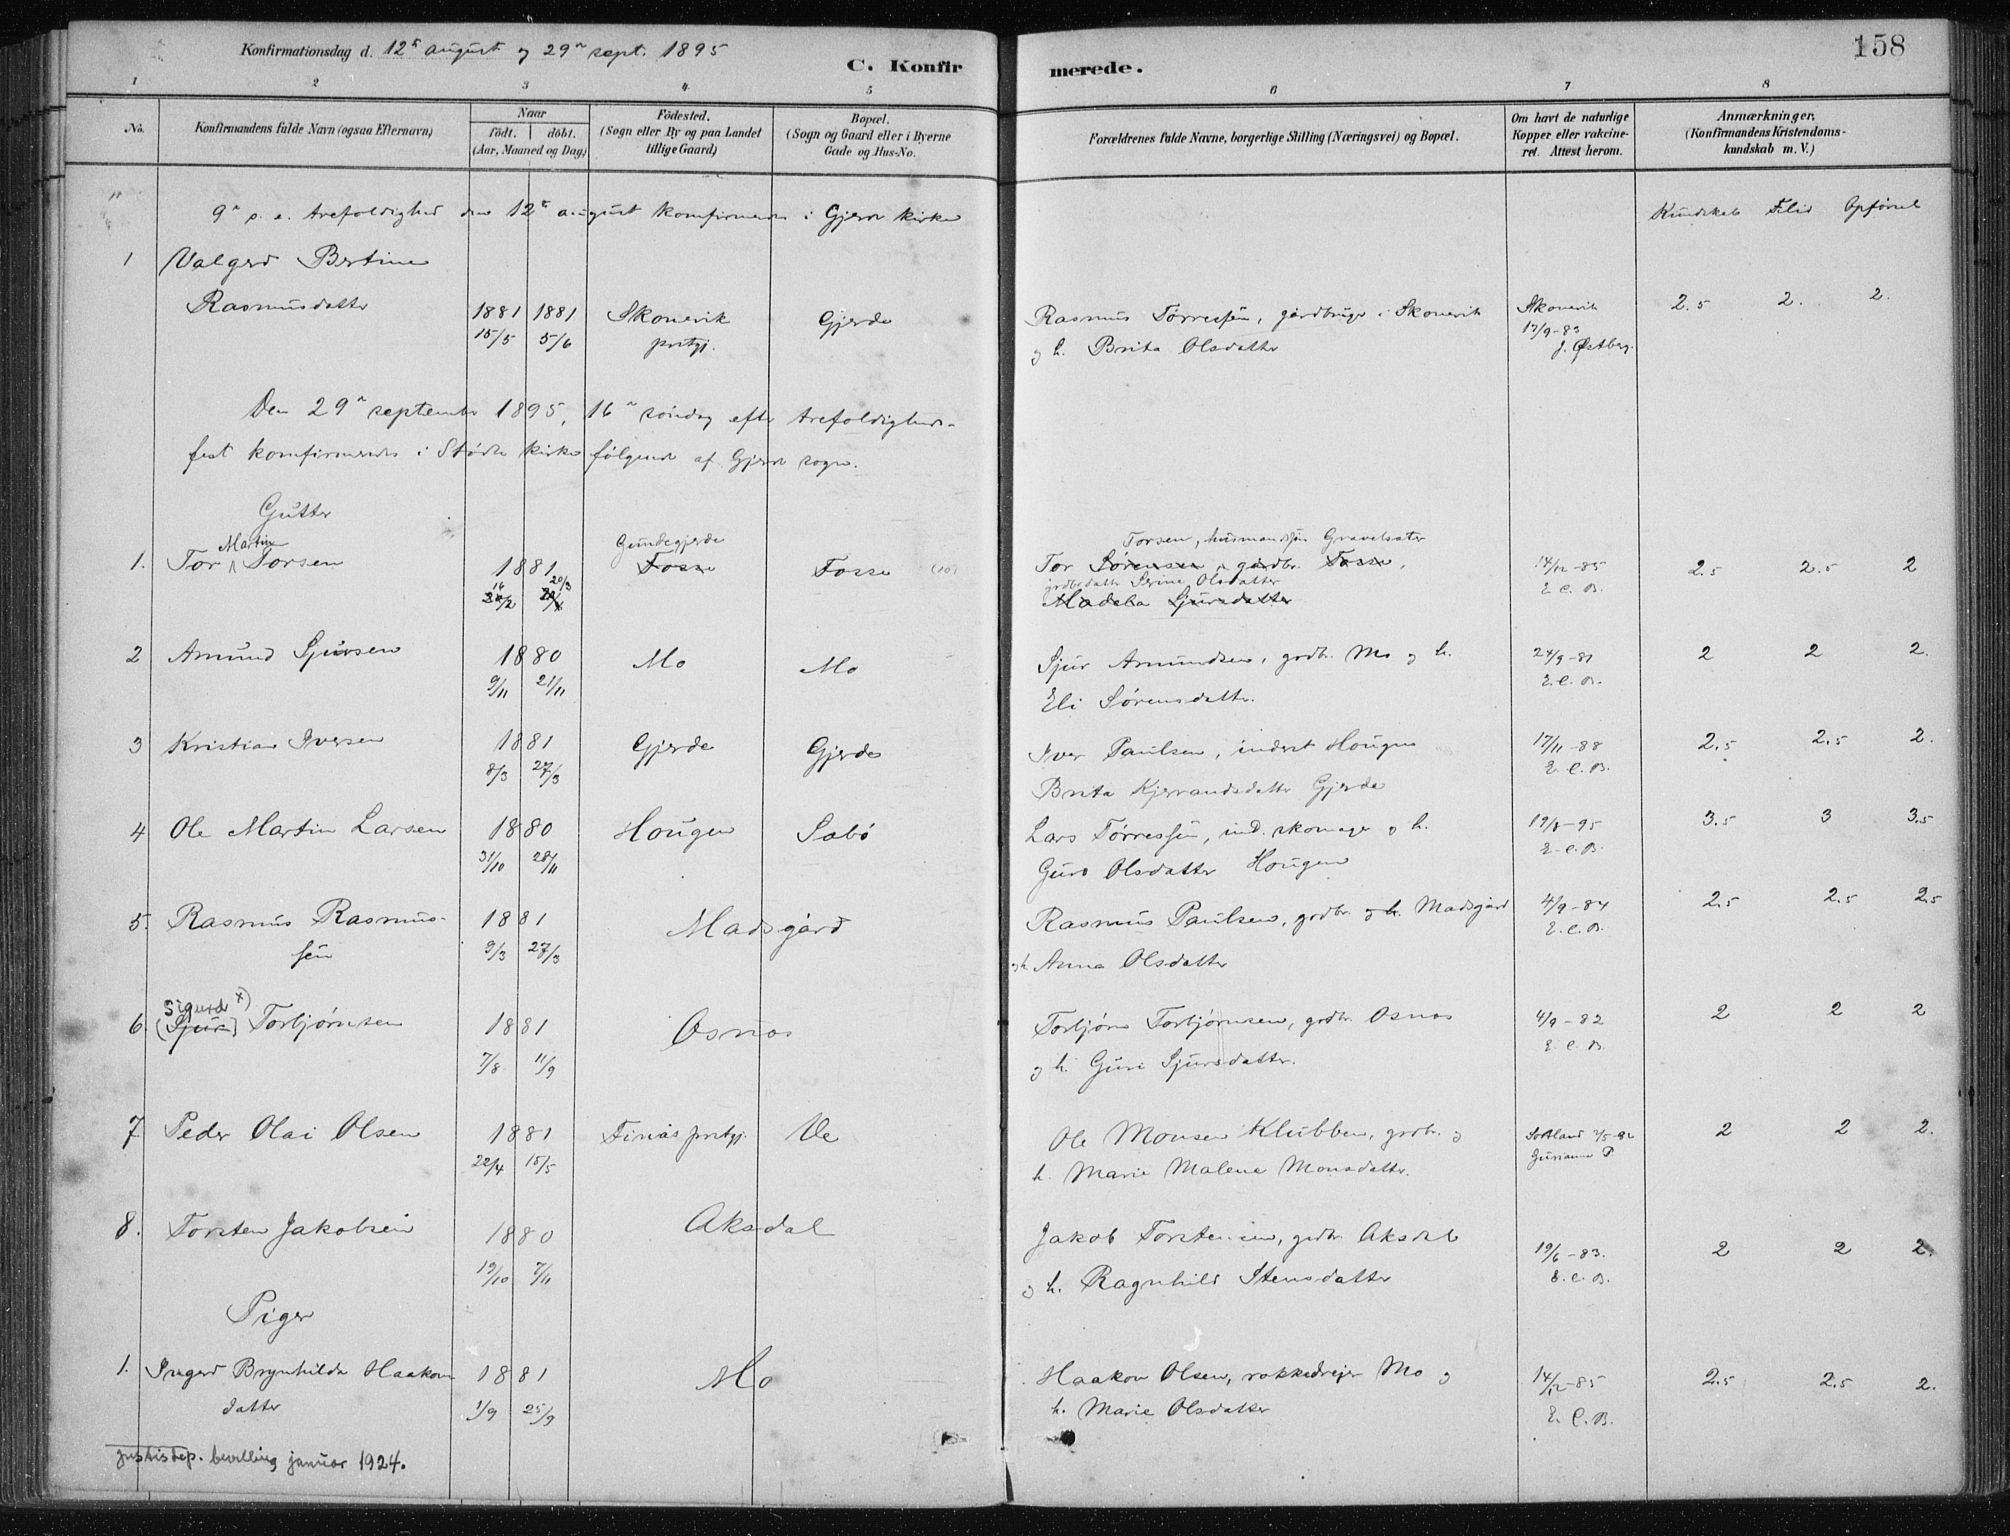 Konfirmationsdag d. 12te august og 29de sept. 1895
C. Konfirmerede.
158
1 2 3 4 5 6 7 8
No.
Konfirmandens fulde Navn (ogsaa Efternavn)
Naar
födt. döbt.
(Aar, Maaned og Dag)
Födested.
(Sogn eller By og paa Landet
tillige Gaard)
Bopæl.
(Sogn og Gaard eller i Byerne
Gade og Hus-No.
Forældrenes fulde Navne, borgerlige Stilling (Næringsvei) og Bopæl.
Om havt de naturlige
Kopper eller vakcine-
ret. Attest herom.
Anmærkninger.
(Konfirmandens Kristendoms-
kundskab m. V.)
9de s. e. trefoldighed den 12te august konfirmeredes i Gjerde kirke
Kundskab Flid Opførsel
1 Valgerd Bertine
Rasmusdatter 1881 1881 Skonevik Gjerde Rasmus Tørressen, gårdbruger i Skonevik Skonevik 2.5 2. 2.
15/5 5/6 prstgj. og h. Brita Olsdatter 17/9-83
J. Østberg.
Den 29de september 1895, 16de søndag efter trefoldigheds-
fest konfirmeredes i Stødle kirke følgende af Gjerde sogn.
Gutter
Martin Gundegjerde Torsen, husmandssøn Gravelsæter
1. Tor Torsen 1881 Fosse Fosse Tor Sørensen, gårdbr. Fosse, 14/12-85 2.5 2.5 2
16 20/3 grdbrdatter Serine Olsdatter E. C. B.
Madela Sjursdatter
2 Amund Sjursen 1880 Mo Mo Sjur Amundsen, grdbr. Mo og h. 24/9-81 2 2 2.
9/11 21/11 Eli Sørensdatter. E. C. B.
3 Kristian Iversen 1881 Gjerde Gjerde Iver Paulsen, inderst Hougen 17/11-88 2.5 2.5 2.
8/3 27/3 Brita Kjerrandsdatter Gjerde E. C. B.
4 Ole Martin Larsen 1880 Hougen Sæbø Lars Tørressen, ind. skomager og h. 19/8-95 3.5 3 3.5
31/10 28/11 Guro Olsdatter Hougen E. C. B.
5. Rasmus Rasmus- 1881 Madsgård Rasmus Paulsen, grdbr. og h. Madsgård 4/9-84 2.5 2.5 2.5
sen 9/3 27/3 og h. Anna Olsdatter E. C. B.
Sigurd x)
6. (Sjur) Torbjørnsen 1881 Osnes Torbjørn Torbjørnsen, grdbr. Osnes 4/9-82 2 2 2
7/8 11/9 og h. Guri Sjursdatter. E. C. B.
7 Peder Olai Olsen 1881 Finås prstgj. Ve Ole Monsen Klubben, grdbr. og Sortland 2 2 2.
22/4 15/5 h. Marie Malene Monsdatter.
8. Torsten Jakobsen 1880 Aksdal Jakob Torstensen, grdbr. Aksdal 19/6-83. 2 2 2.
19/10 7/11 og h. Ragnhild Stensdatter E. C. B.
Piger
1. Ingerd Brynhilda Haakons 1881 Mo Haakon Olsen, rokkedreier Mo og 14/12-85 2.5 2.5 2.
datter 1/9 25/9 h. Marie Olsdatter E. C. B.
justisdep. bevilling januar 1924.